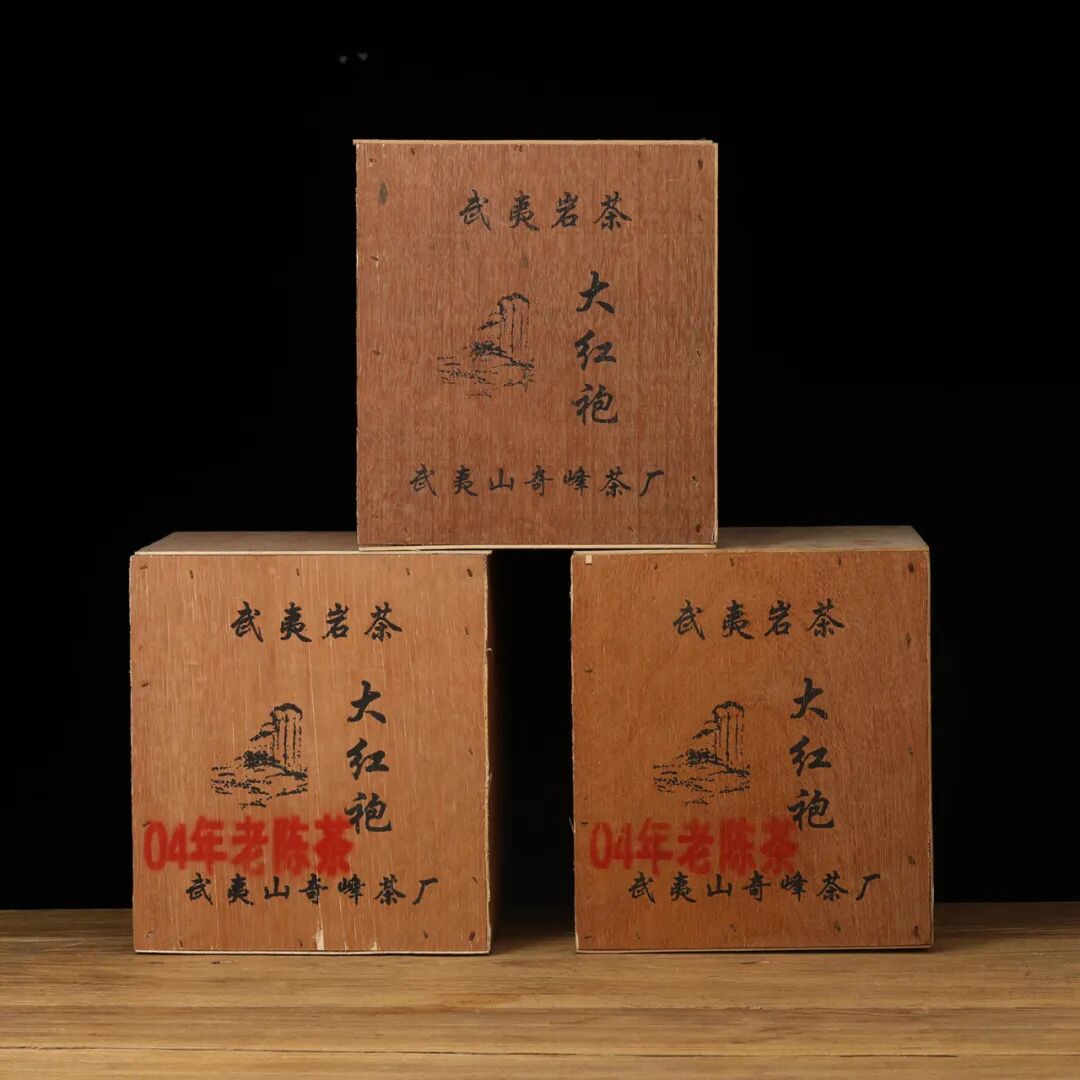 武夷岩茶
大红袍
武夷山奇峰茶厂
武夷岩茶
大红袍
04年老陈茶
武夷山奇峰茶厂
武夷岩茶
大红袍
04年老陈茶
武夷山奇峰茶厂